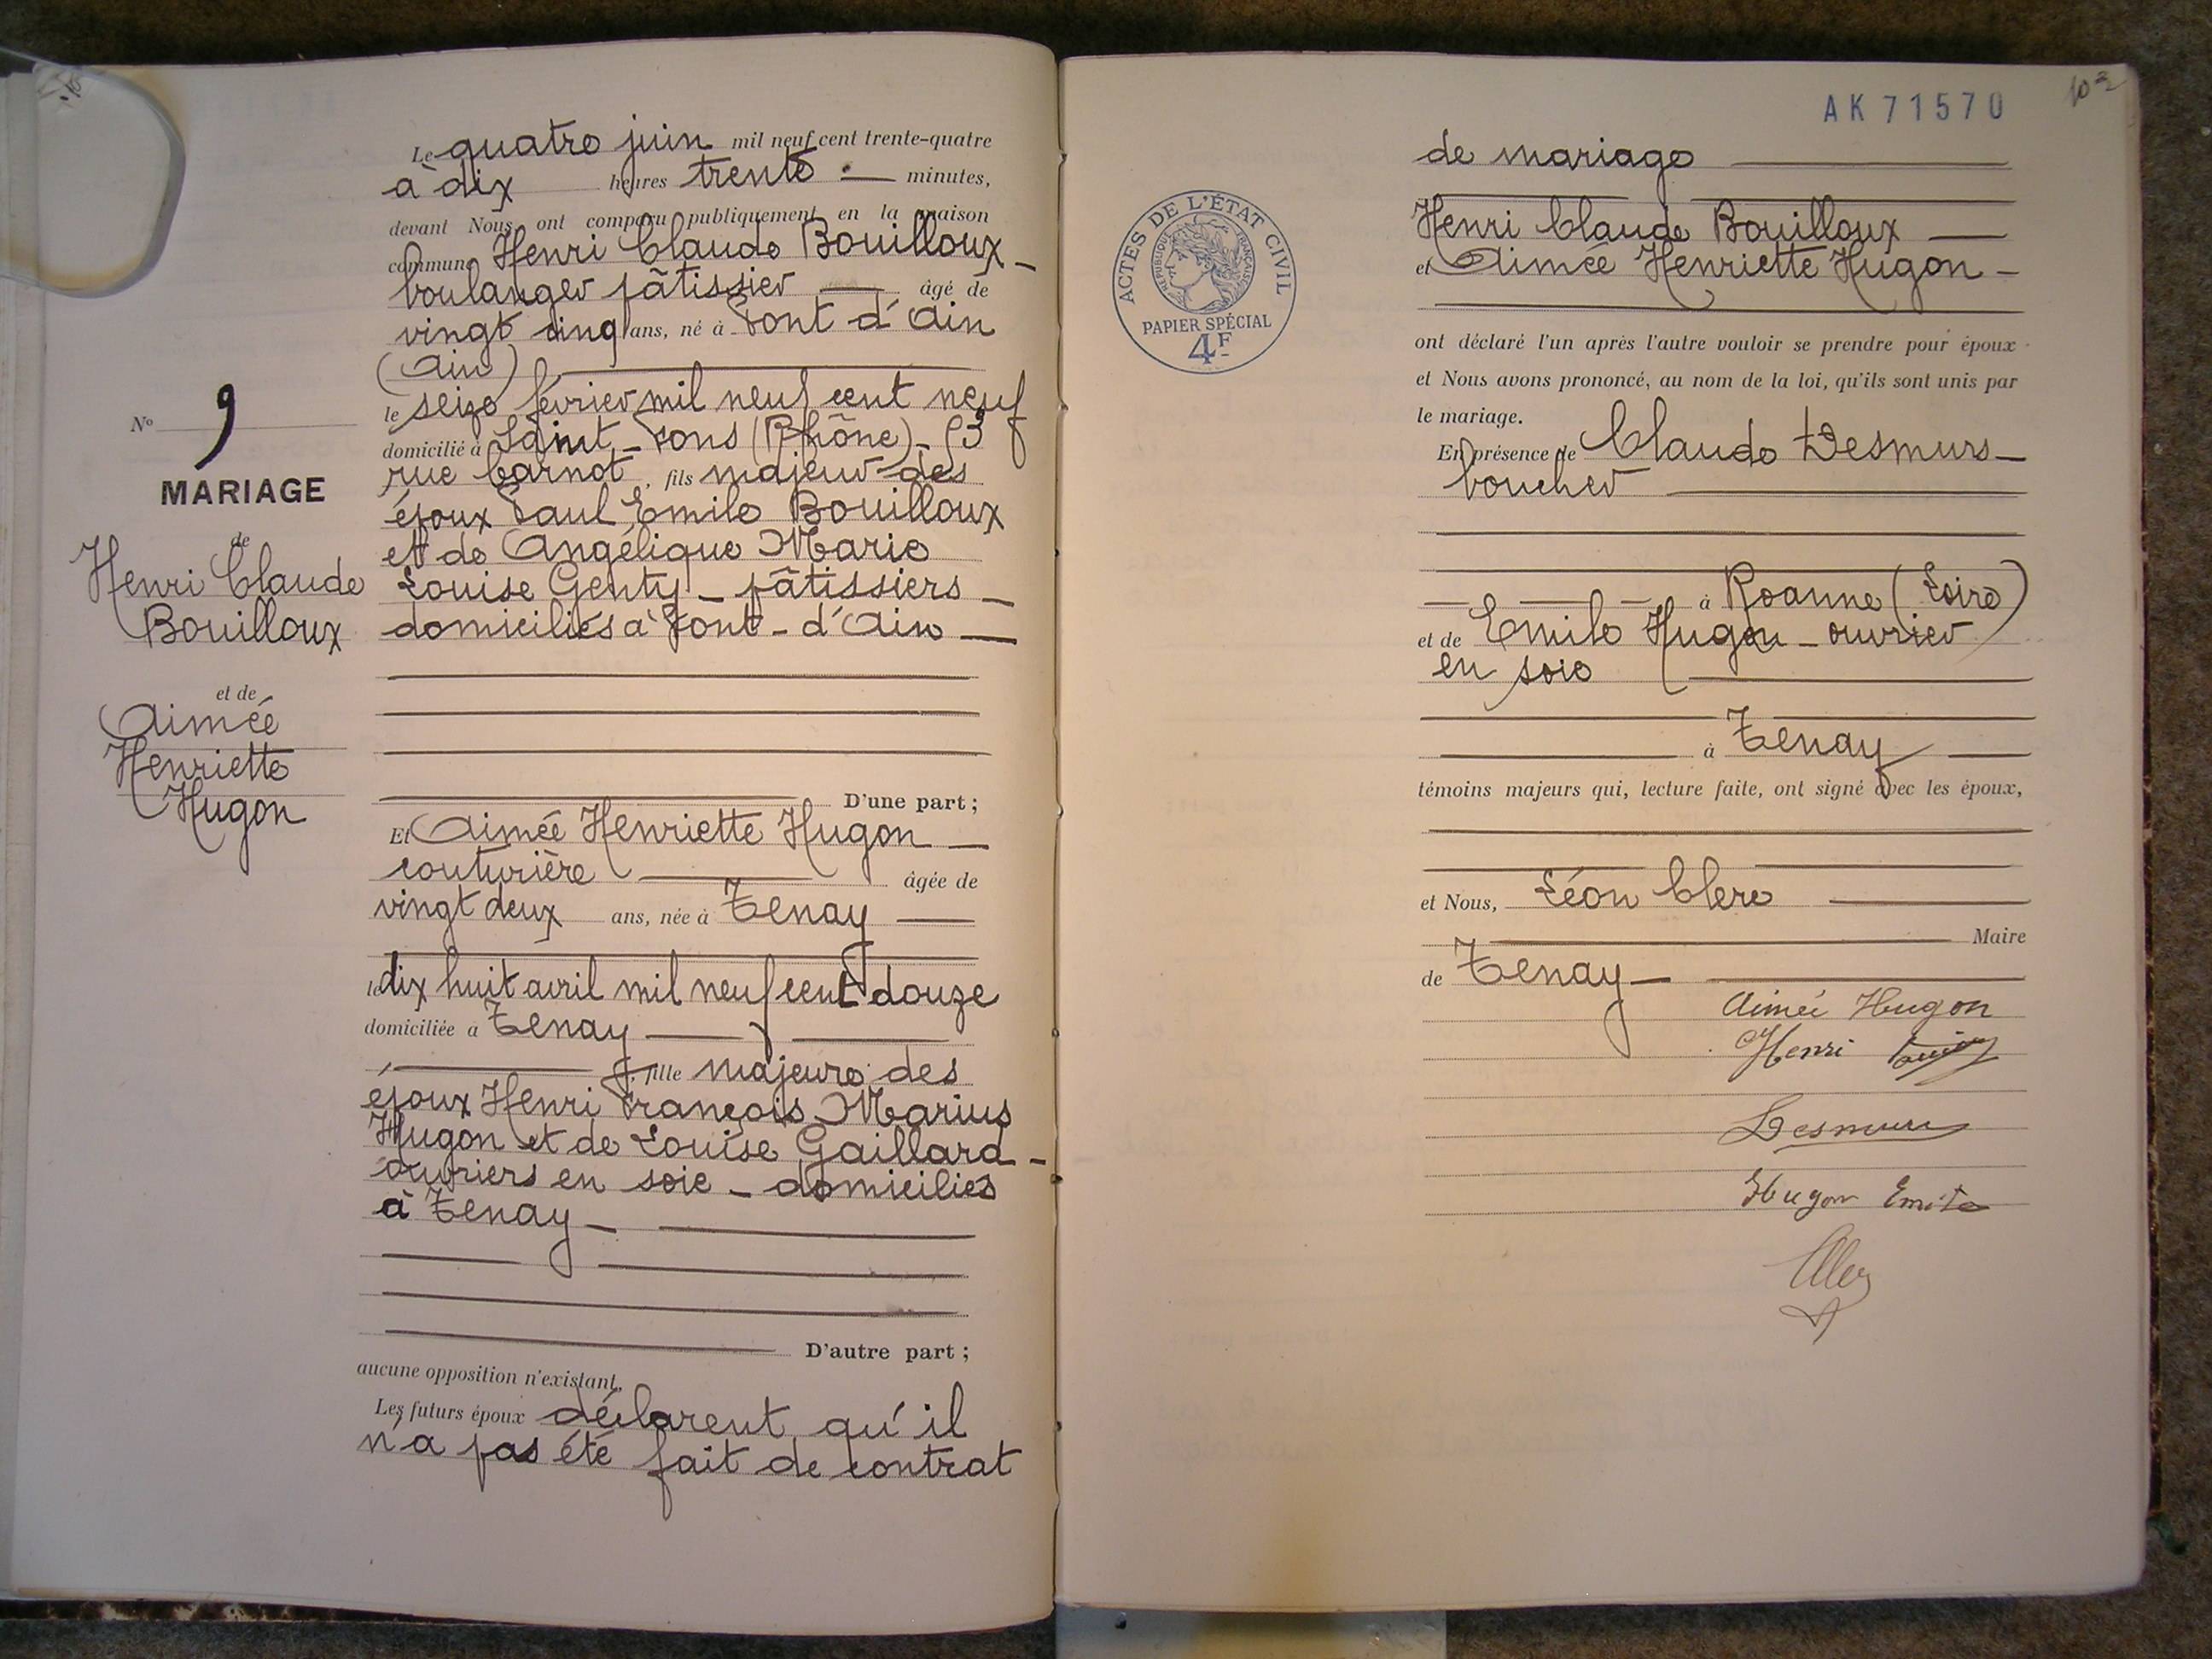 Le quatre juin mil neuf cent trente-quatre
à dix heures trente minutes,
devant Nous ont comparu publiquement en la maison
commune Henri Claude Bouilloux
boulanger pâtissier âgé de
vingt cinq ans, né à Pont d'Ain
(Ain)
le seize février mil neuf cent neuf
domicilié à Saint-Fons (Rhône)
rue Carnot, fils majeur des
époux Paul Emile Bouilloux
et de Angélique Marie
Louise Genty - pâtissiers
domiciliés à Pont-d'Ain
D'une part ;
Et Aimée Henriette Hugon
couturière âgée de
vingt deux ans, née à Tenay
le dix huit avril mil neuf cent douze
domiciliée à Tenay
fille majeure des
époux Henri François Marius
Hugon et de Louise Gaillard -
ouvriers en soie - domiciliés
à Tenay -
D'autre part ;
aucune opposition n'existant,
Les futurs époux déclarent qu'il
n'a pas été fait de contrat
No 9
MARIAGE
de
Henri Claude
Bouilloux
et de
Aimée
Henriette
Hugon
AK 71570
ACTES DE L'ÉTAT CIVIL
RÉPUBLIQUE FRANÇAISE
PAPIER SPÉCIAL
4F
de mariage
Henri Claude Bouilloux
et Aimée Henriette Hugon -
ont déclaré l'un après l'autre vouloir se prendre pour époux
et Nous avons prononcé, au nom de la loi, qu'ils sont unis par
le mariage.
En présence de Claude Desmurs -
boucher
à Roanne (Loire)
et de Emile Hugon - ouvrier
en soie
à Tenay
témoins majeurs qui, lecture faite, ont signé avec les époux,
et Nous, Léon Clerc
Maire
de Tenay -
Aimée Hugon
Henri
Desmurs
Hugon Emile